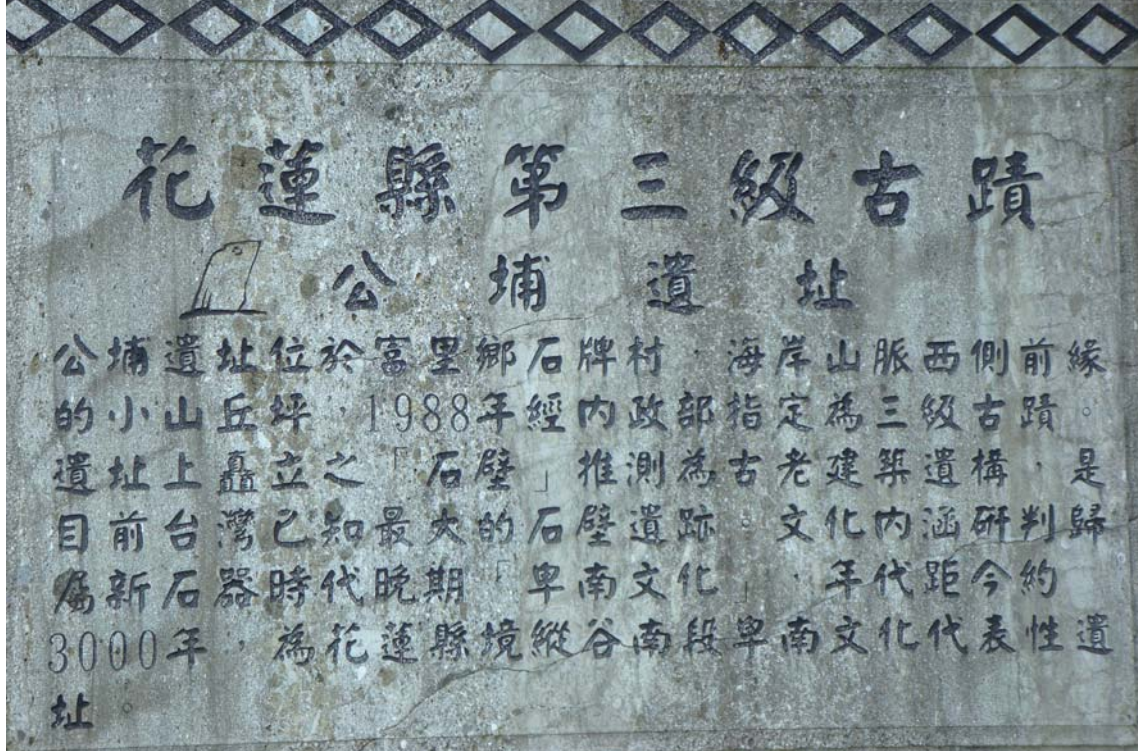 花蓮縣第三級古蹟
公埔遺址
公埔遺址位於富里鄉石牌村,海岸山脈西側前緣
的小山丘坪,1988年經內政部指定為三級古蹟。
遺址上矗立之「石壁」推測為古老建築遺構,是
目前台灣已知最大的石壁遺跡。文化內涵研判歸
屬新石器時代晚期「卑南文化」,年代距今約
3000年,為花蓮縣境縱谷南段卑南文化代表性遺
址。